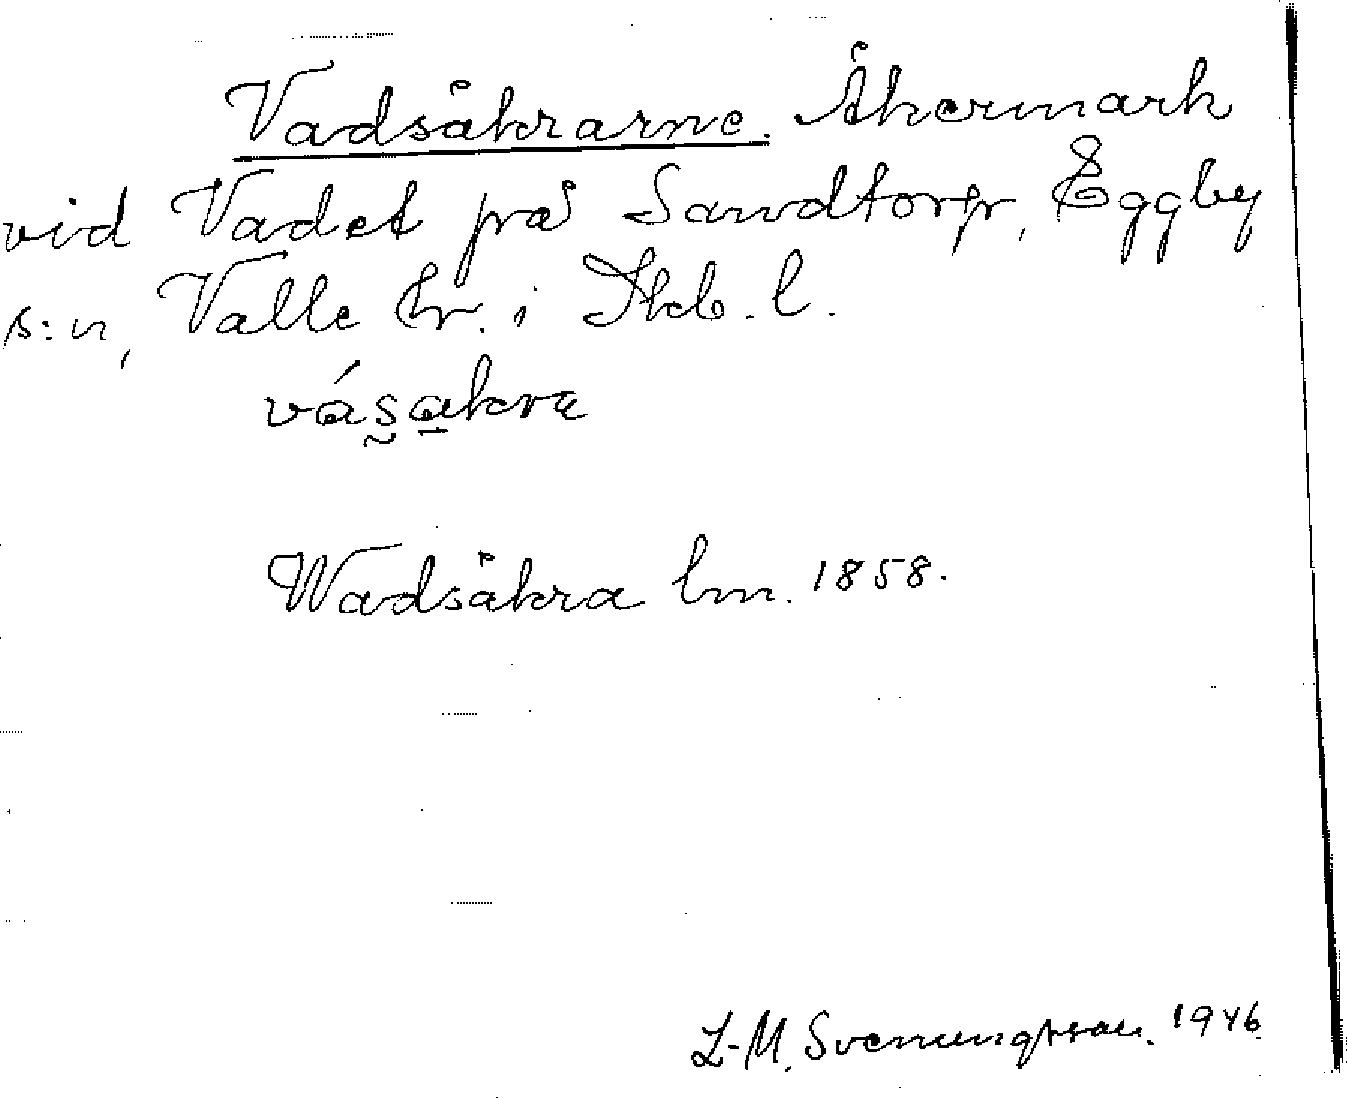 Vadsåkrarne. Åkermark
vid Vadet på Sandtorp, Eggby
s:n, Valle hr. i Skb. l.
vás̰a̠kra
Wadsåkra lm. 1858.
L-M. Svenungsson. 1946